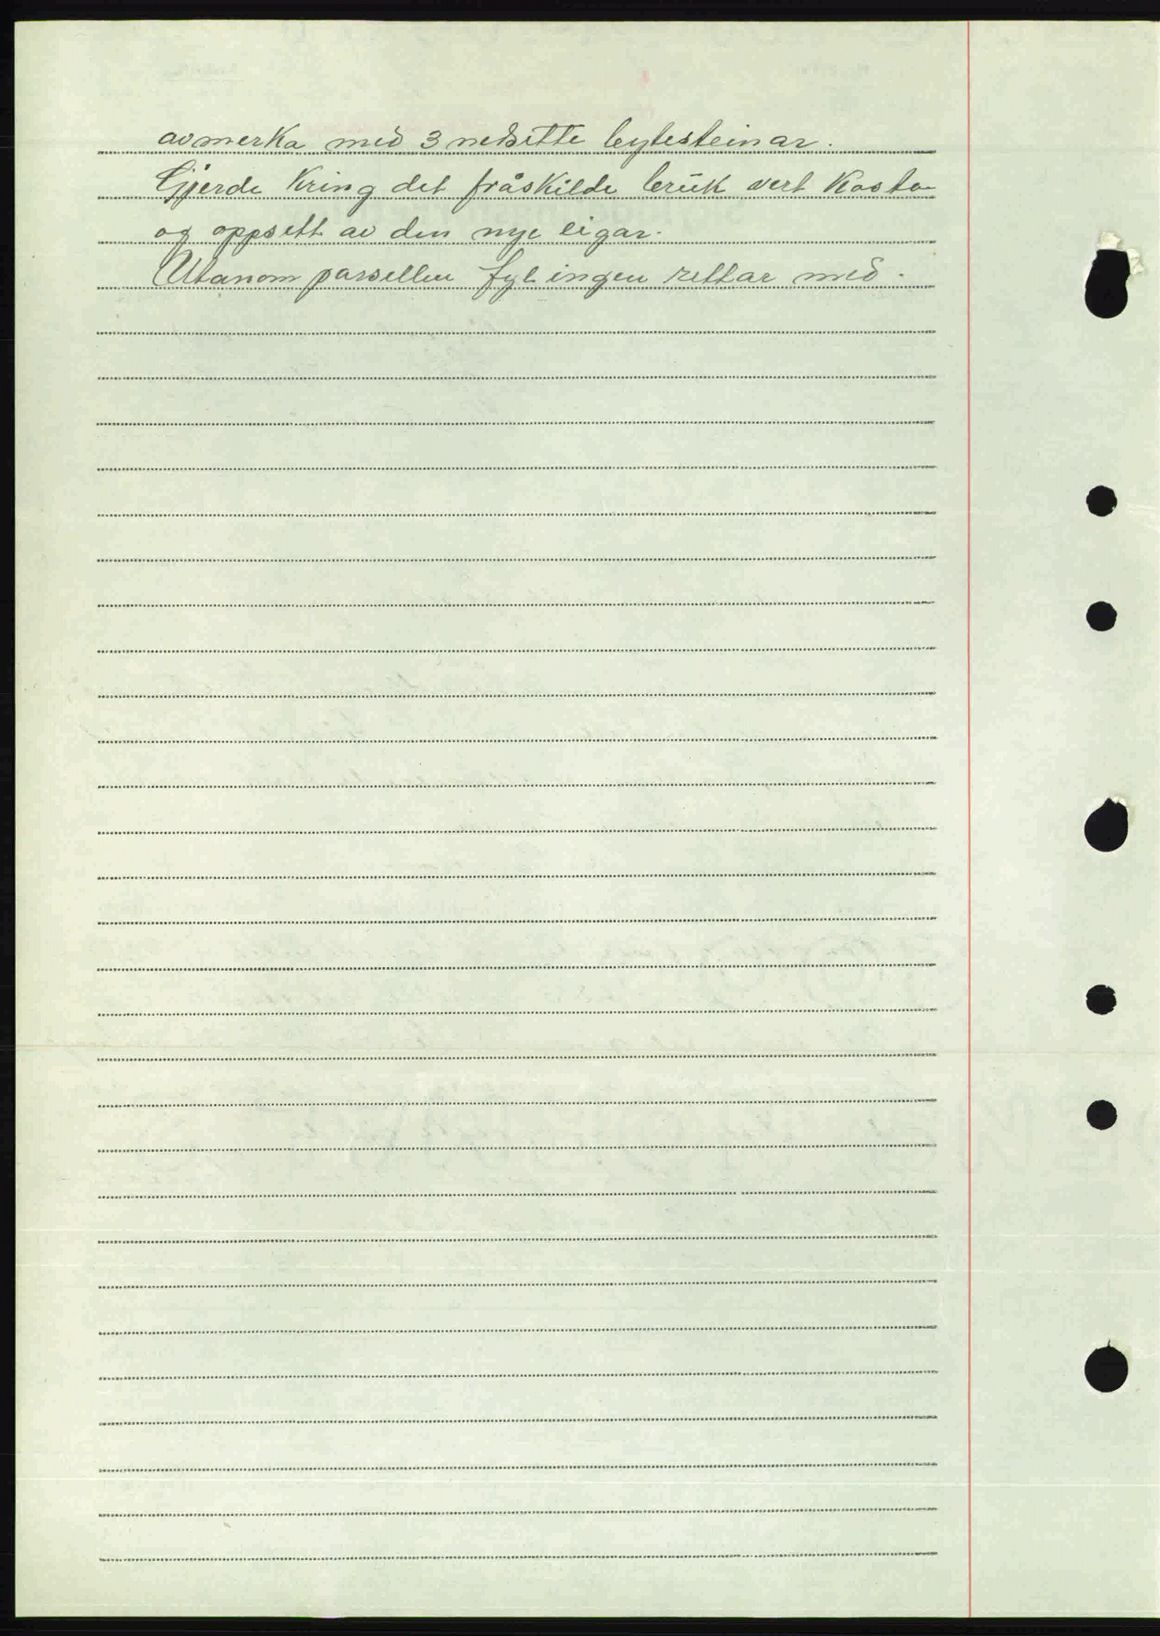 avmerka med 3 nedsette bytesteinar.
Gjerde kring det fråskilde bruk vert kosta
og oppsett av den nye eigar.
Utanom parsellen fyl ingen rettar med.